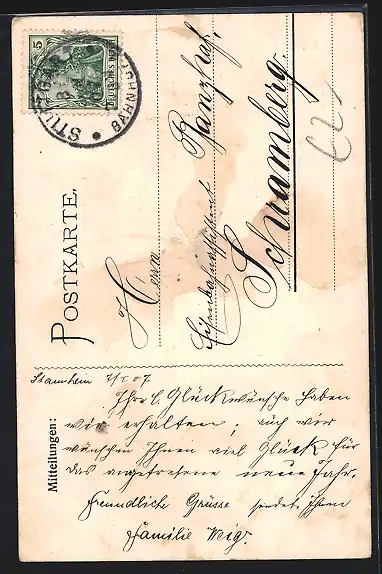 5
DEUTSCHES REICH
STUTTGART
BAHNHOF
POSTKARTE.
Herrn
Eisenbahnassistent Ranzhaf,
Schramberg.
Mitteilungen:
Stammheim 7/I 07
Ihre l. Glückwünsche haben
wir erhalten; auch wir
wünschen Ihnen viel Glück für
das angetretene neue Jahr.
Freundliche Grüsse sendet Ihnen
Familie Weig.